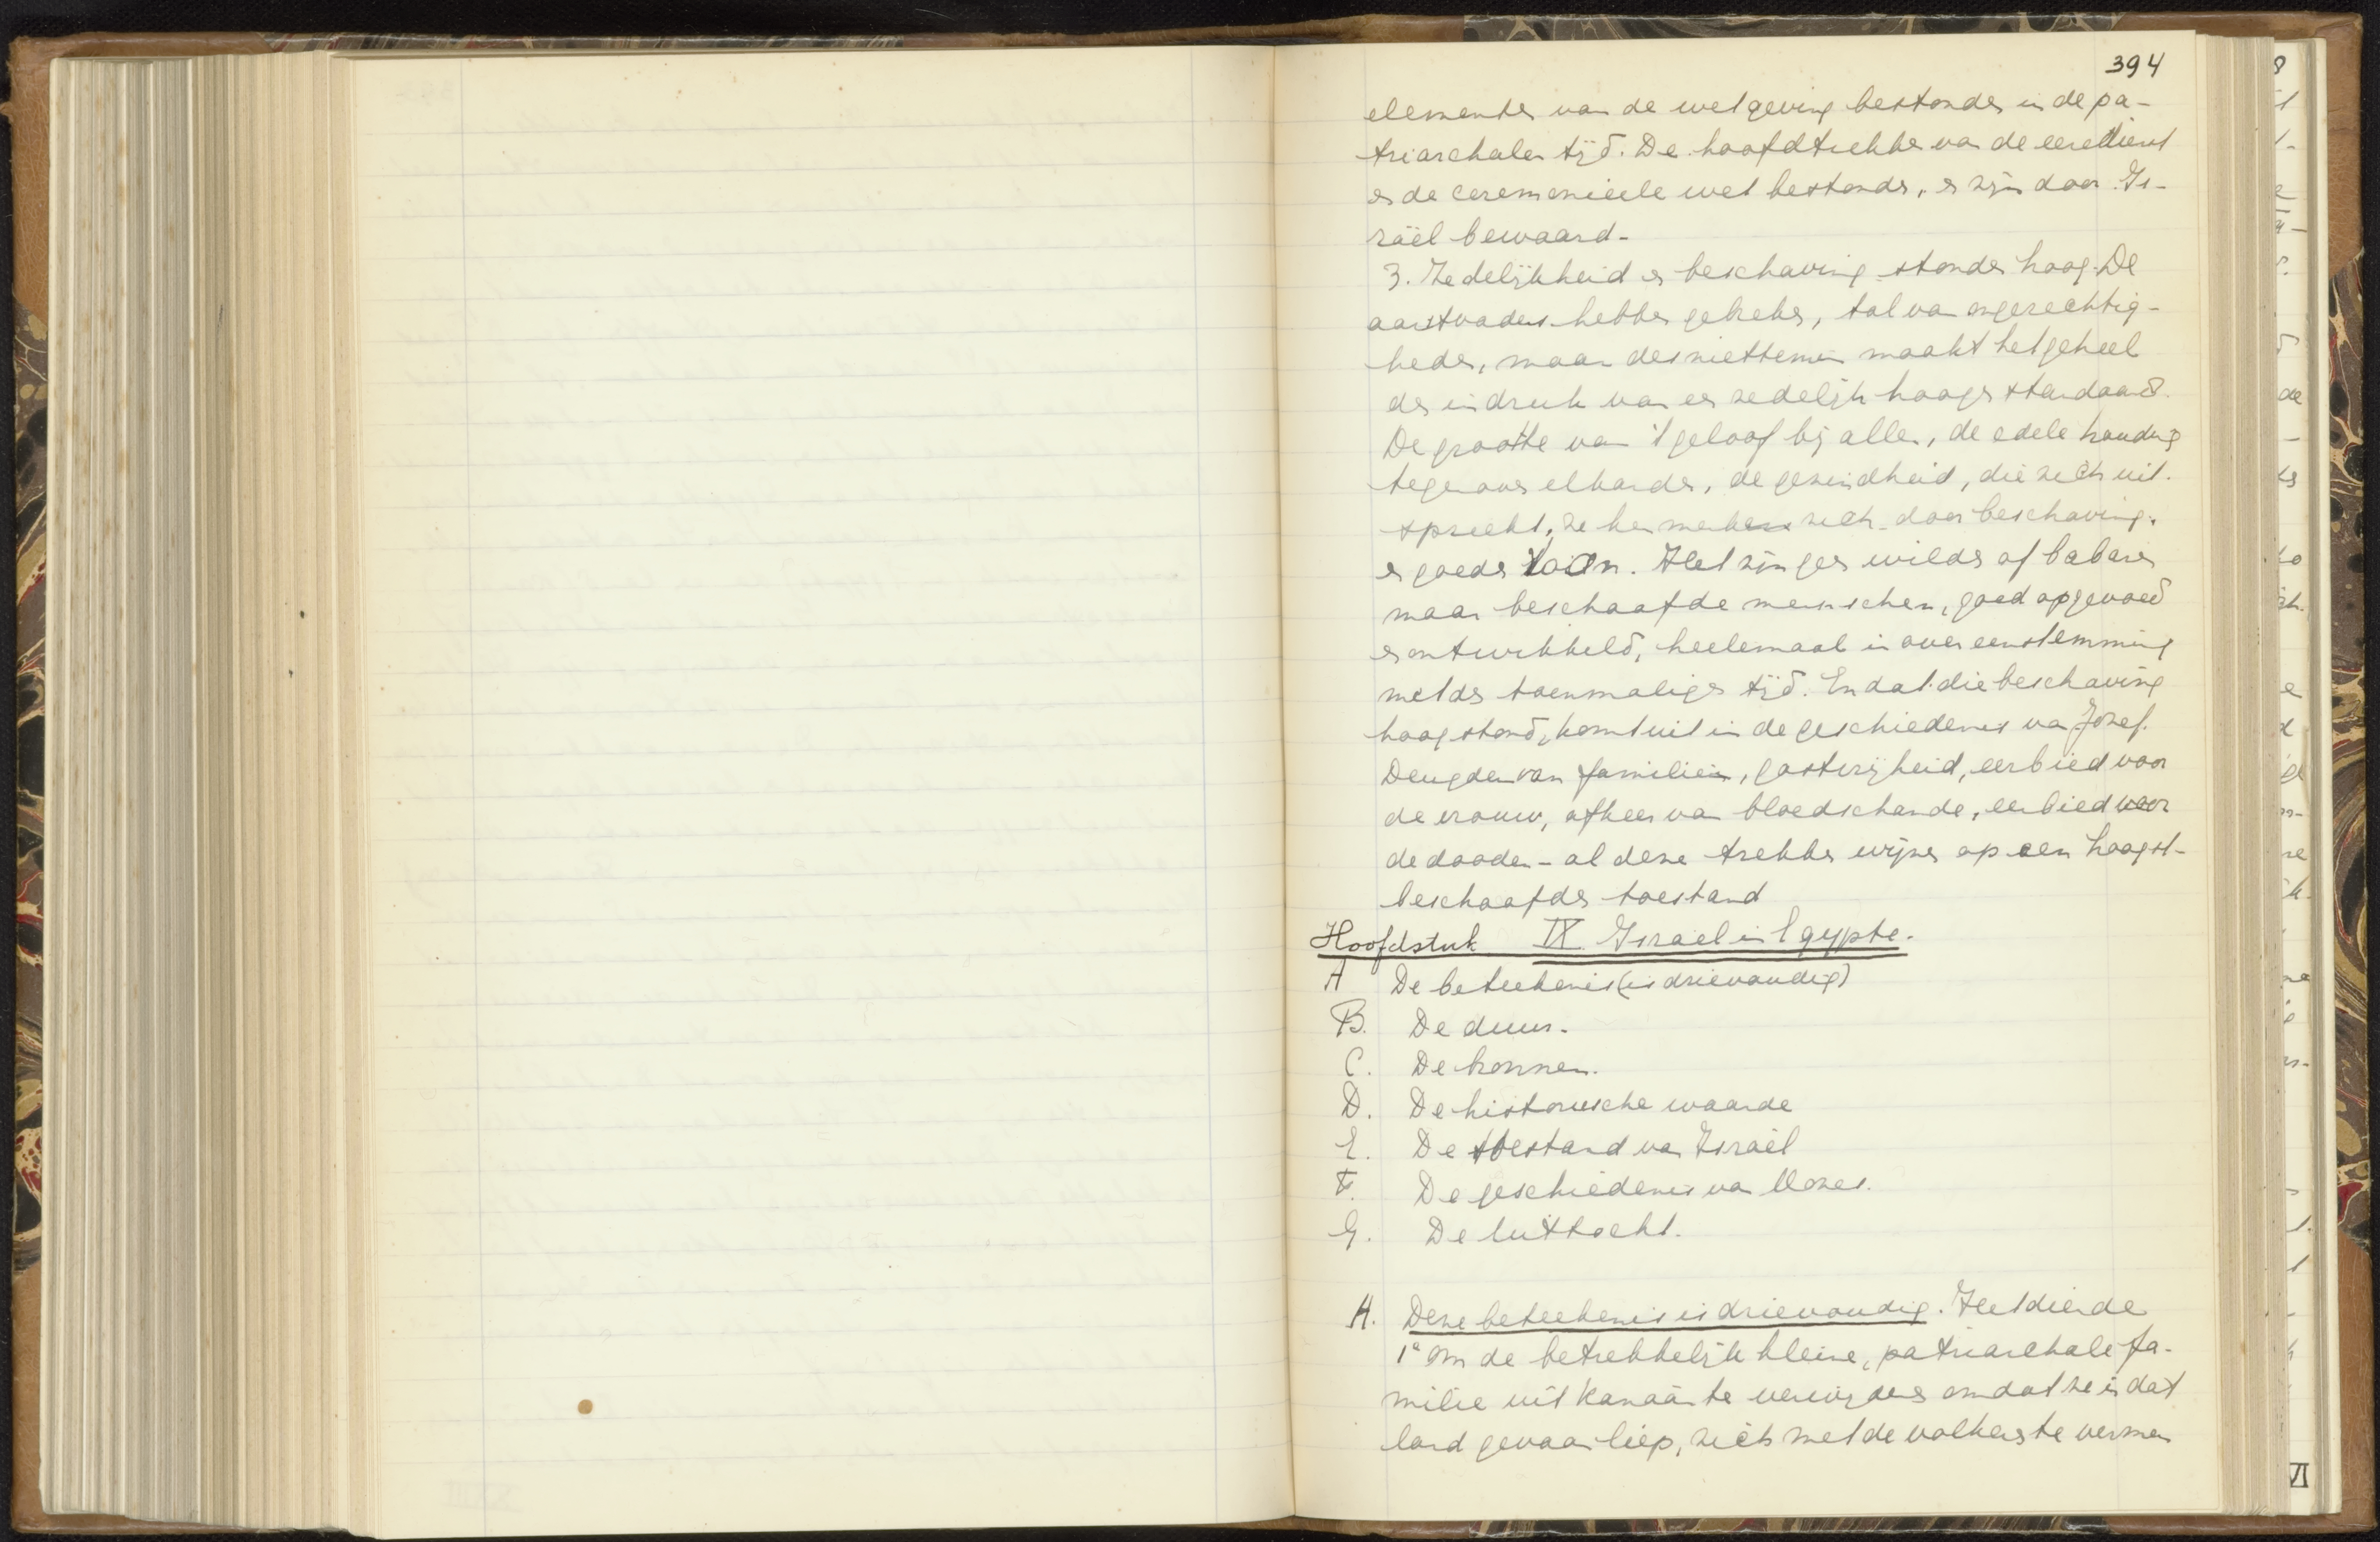 394
elementen van de wetgeving bestonden in de pa-
triarchalen tijd. De hoofdtrekken van de eeredienst
en de ceremonieele wet bestonden, en zijn door Is-
raël bewaard.
3. Zedelijkheid en beschaving stonden hoog. De
aartsvaders hebben gebreken, tal van ongerechtig-
heden, maar desniettemin maakt het geheel
den indruk van een zedelijk hoogen standaard.
De grootte van 't geloof bij allen, de edele houding
tegenover elkander, de gezindheid, die zich uit-
spreekt, ze kenmerken zich door beschaving
en goeden toon. Het zijn geen wilden of babaren
maar beschaafde menschen, goed opgevoed
en ontwikkeld, heelemaal in overeenstemming
met den toenmaligen tijd. En dat die beschaving
hoog stond, komt uit in de geschiedenis van Jozef.
Deugden van familiezin, gastvrijheid, eerbied voor
de vrouw, afkeer van bloedschande, eerbied voor
de dooden - al deze trekken wijzen op een hoogst-
beschaafden toestand
Hoofdstuk IX Israel in Egypte.
A De beteekenis (is drievoudig)
B. De duur.
C. De bronnen.
D. De historische waarde
E. De toestand van Israël
F. De geschiedenis van Mozes.
G. De uittocht.
A. Deze beteekenis is drievoudig. Het diende
1e om de betrekkelijk kleine, patriarchale fa-
milie uit Kanaän te verwijderen omdat ze in dat
land gevaar liep, zich met de volkeren te vermen
VI